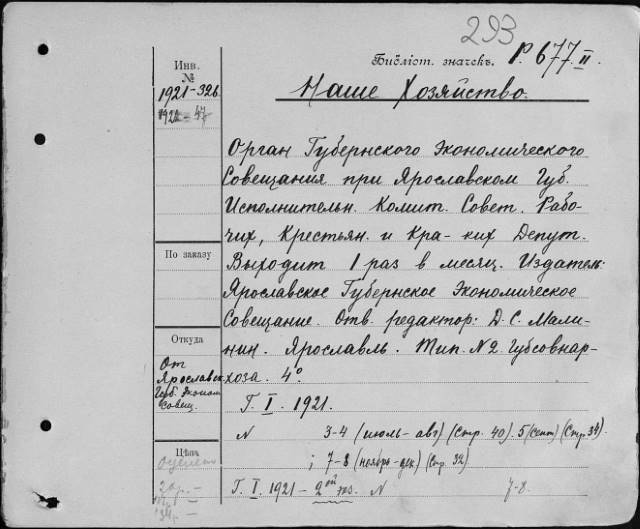 293
Библіот. значекъ. Р. 677 II.
Наше Хозяйство.
Инв.
№
1921-326
1921-47
Орган Губернского Экономического
Совещания при Ярославском Губ.
Исполнительн. Комит. Совет. Рабо-
чих, Крестьян. и Кра- ких Депут.
По заказу
Выходит 1 раз в месяц. Издатель:
Ярославское Губернское Экономическое
Совещание. Отв. редактор: Д. С. Мали-
Откуда
нин. Ярославль. Тип. №2 Губсовнар-
хоза. 4°.
От
Ярославск.
Губ. Эконом
Совещ.
Г. I. 1921.
N 3-4 (июль-авг) (Стр. 40). 5 (сент) (Стр. 34)
; 7-8 (ноябрь-дек) (Стр. 32)
Цѣна
Г. I. 1921 - 2ой экз. N 7-8.